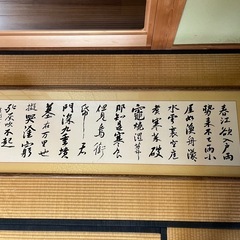 春江欲入戶雨
勢来不已雨小
屋如漁舟濛
水雲裏空庖
煮寒菜破
竈燒濕葦
那知是寒食
但見烏銜
帋君
門深九重墳
墓在万里也
擬哭塗窮
死灰吹不起